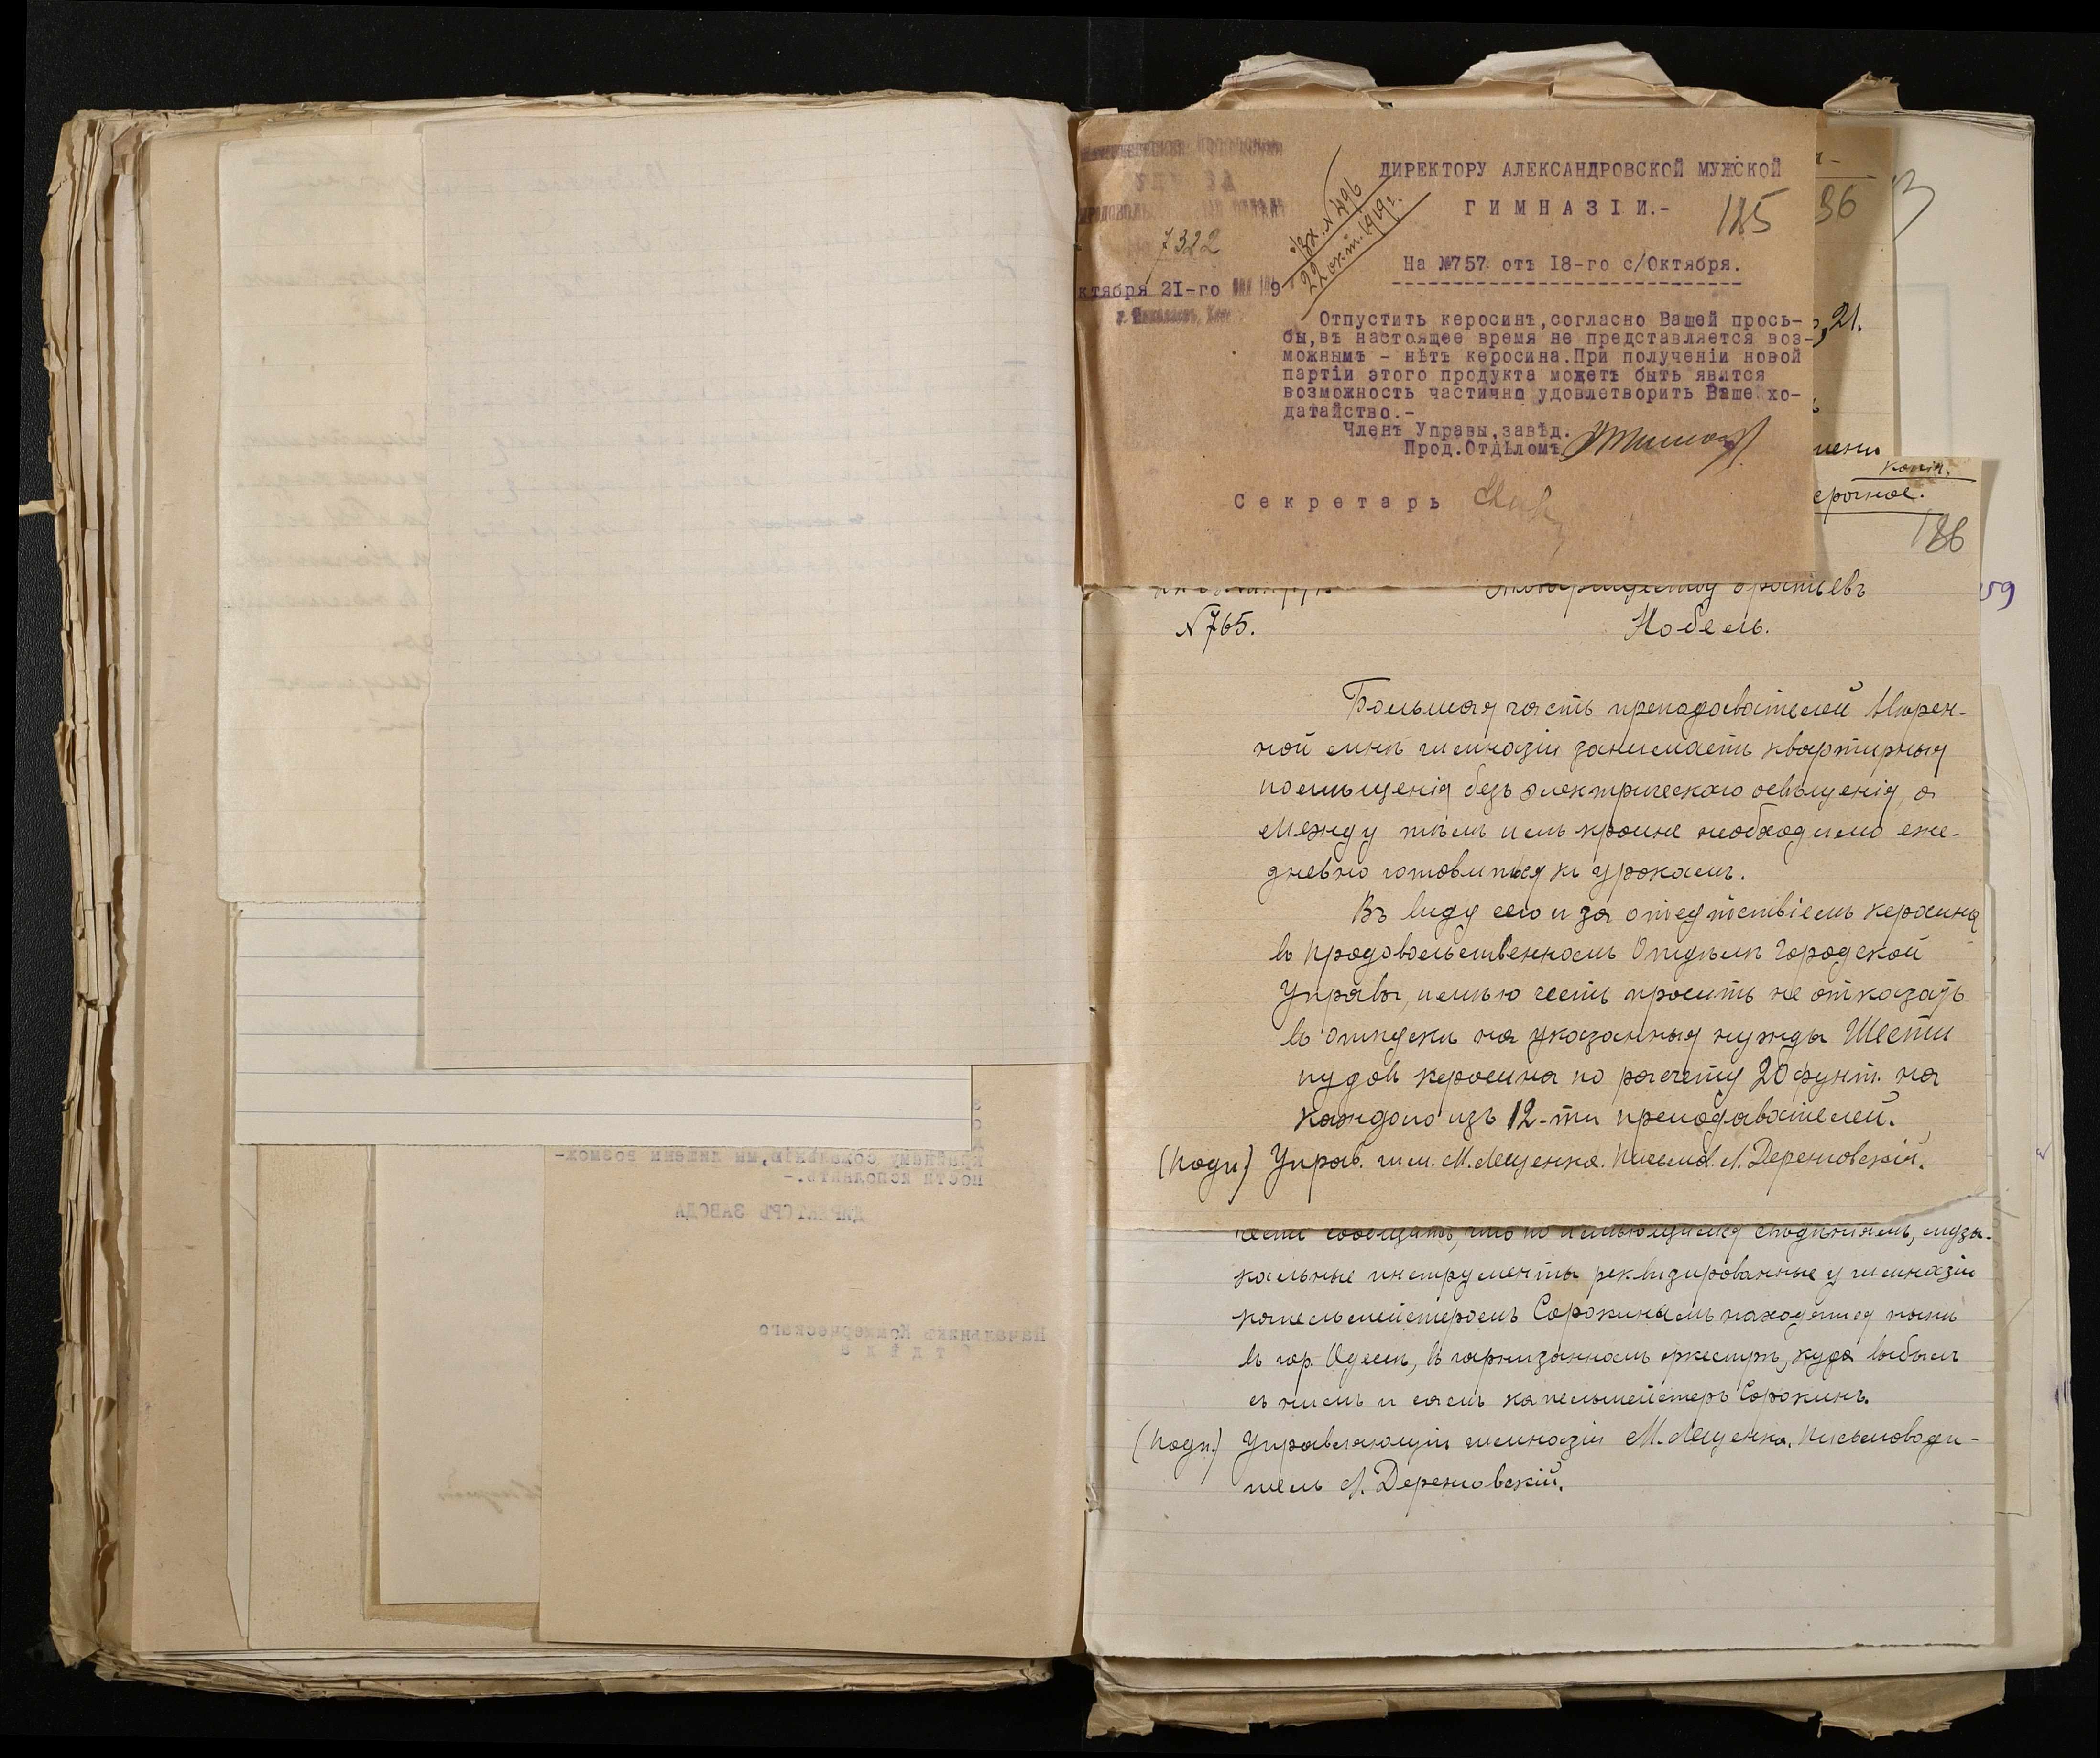 7322
ктября 21-го 9
Вх. № 496
22 окт. 1919 г.
ДИРЕКТОРУ АЛЕКСАНДРОВСКОЙ МУЖСКОЙ
ГИМНАЗІИ.-
185
На №757 отъ 18-го с/Октября.
Отпустить керосинъ,согласно Вашей прось-
бы,въ настоящее время не представляется воз-
можнымъ - нѣтъ керосина.При полученіи новой
партіи этого продукта можетъ быть явится
возможность частично удовлетворить Ваше хо-
датайство.-
Членъ Управы,завѣд.
Прод.Отдѣломъ
Секретарь
36
21.
копія.
срочное.
186
59
Товариществу Братьевъ
№ 765.
Нобель.
Большая часть преподавателей ввѣрен-
ной мнѣ гимназіи занимаетъ квартирныя
помѣщенія безъ электрическаго освѣщенія, а
между тѣмъ имъ крайне необходимо еже-
дневно готовиться къ урокамъ.
Въ виду сего и за отсутствіемъ керосина
въ Продовольственномъ Отдѣлѣ Городской
Управы, имѣю честь просить не отказать
въ отпускѣ на указанныя нужды Шести
пудовъ керосина по расчету 20 фунт. на
каждого изъ 12-ти преподавателей.
(Подп.) Управ. гим. М. Лещенко. Письмов. Л. Деренговскій.
чести сообщить, что по имѣющимся свѣдѣніямъ, музы-
кальные инструменты реквизированные у гимназіи
капельмейстеромъ Сорокинымъ находятся нынѣ
въ гор. Одессѣ, въ гарнизонномъ оркестрѣ, куда выбылъ
съ ними и самъ капельмейстеръ Сорокинъ.
(Подп.) Управляющій гимназіи М. Лещенко. Письмоводи-
тель Л. Деренговскій.
крайнему сожалѣнію,мы лишены возмож-
ности исполнить.-
ДИРЕКТОРЪ ЗАВОДА
Начальникъ Коммерческаго